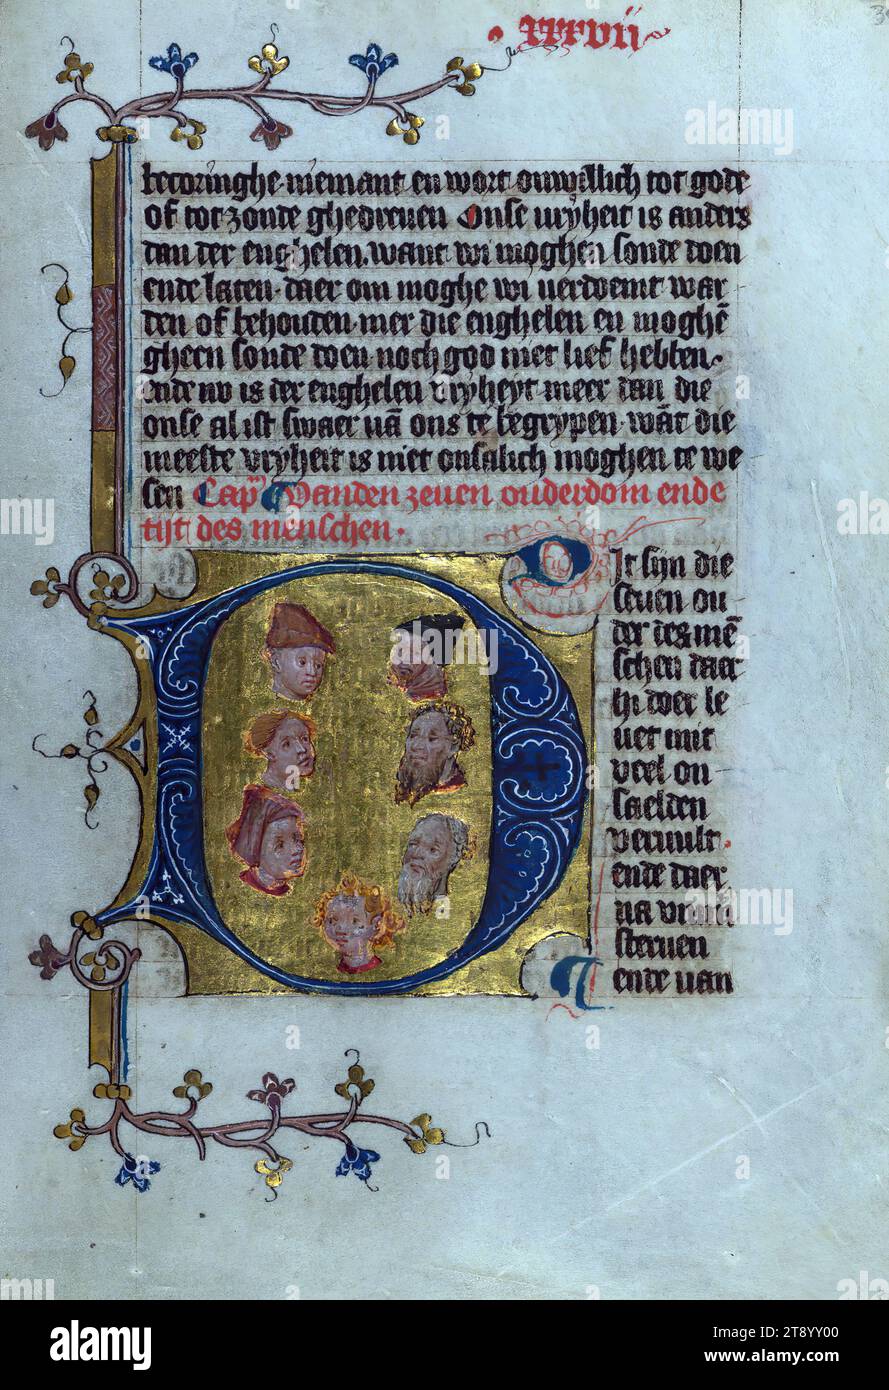 .xxxvii
becoringhe niemant en wort onwillich tot gode
of tot zonde ghedreuen Onse vryheit is anders
dan der enghelen. want wi moghen sonde doen
ende laten. daer om moghe wi uerdoemt war
den of behouden. mer die enghelen en moghē
gheen sonde doen noch god niet lief hebben.
ende nv is der enghelen vryheyt meer dan die
onse al ist swaer uā ons te begrypen. wāt die
meeste vryheit is niet onsalich moghen te we
sen Cap Vanden zeuen ouderdom ende
tijt des menschen.
Dit sijn die
seuen ou
der des mē
schen daer
hi doer le
uet mit
veel on
saelden
veruult.
ende daer
na
steruen
ende uan
alamy
Image ID: 2T8YY00
www.alamy.com